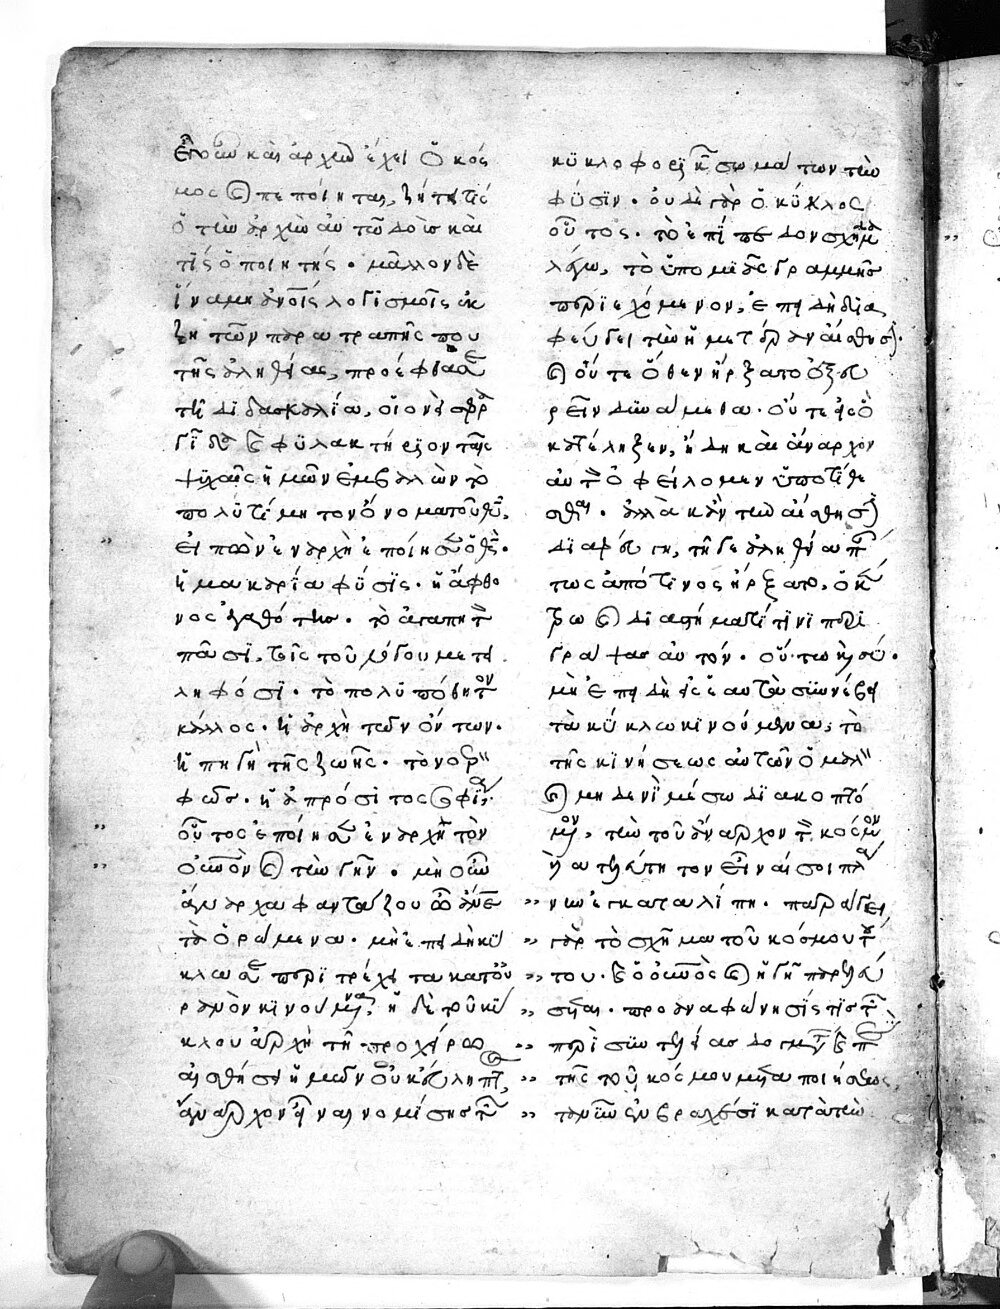 Εἰ οὖν καὶ ἀρχὴν ἔχει ὁ κόσ
μος καὶ πεποίηται, ζήτει τίς
ὁ τὴν ἀρχὴν αὐτῶ δοὺς καὶ
τίς ὁ ποιητής· μᾶλλον δὲ
ἵνα μὴ ἀνοις λογισμοῖς ἐκ
ζητῶν παρατραπῆς που
τῆς ἀληθείας, προέφθασε
τῆ διδασκαλία, οἱονεὶ σφρα
γῖδα καὶ φυλακτήριον ταῖς
ψυχαῖς ἡμῶν ἐμβαλὼν τὸ
πολυτίμητον ὄνομα τοῦ θυ,
εἰπὼν ἐν ἀρχῆ ἐποίησεν ὁ θς·
ἡ μακαρία φύσις· ἡ ἄφθο
νος ἀγαθότης· τὸ ἀγαπητὸν
πᾶσι, τοῖς τοῦ λόγου μετει
ληφόσι· τὸ πολυπόθητον
κάλλος· ἡ ἀρχὴ τῶν ὄντων·
ἡ πηγὴ τῆς ζωῆς· τὸ νοερὸν
φῶς· ἡ ἀπρόσιτος σοφία·
οὗτος ἐποίησεν ἐν ἀρχῆ τὸν
οὐνὸν καὶ τὴν γῆν· μὴ οὖν
ἄναρχα φαντάζου ὦ ἄνε
τὰ ὁρώμενα· μὴ ἐπειδὴ κύ
κλω περιτρέχει τα κατ οὐ
ρανὸν κινούμενα, ἡ δὲ τοῦ κύ
κλου ἀρχὴ τῆ προχείρω
αἰσθήσει ἡμῶν οὐκ εὔληπτος,
ἄναρχον εἶναι νομίσης τῶν
κυκλοφορικῶν σωμάτων τὴν
φύσιν· οὐδὲ γὰρ ὁ κύκλος
οὗτος· τὸ ἐπίπεδον σχῆμα
λέγω, τὸ ὑπὸ μιᾶς γραμμῆς
περιεχόμενον, ἐπειδὴ δια
φεύγει τὴν ἡμετέραν αἴσθησιν·
καὶ οὔτε ὅθεν ἤρξατο ἐξευ
ρεῖν δυνάμεθα· οὔτε εἰς ὃ
κατέληξεν, ἤδη καὶ ἄναρχον
αὐτὸν ὀφείλομεν ὑποτίθε
σθαι· ἀλλὰ κἂν τὴν αἴσθησιν
διαφεύγη, τῆ γε ἀληθεία πάν
τως ἀπό τινος ἤρξατο, ὁ κέν
τρω καὶ διαστήματί τινι περι
γράψας αὐτόν· οὕτω καὶ σύ·
μὴ ἐπειδὴ εἰς ἑαυτὰ συννεύει
τὰ κύκλω κινούμενα, τὸ
τῆς κινήσεως αὐτῶν ὁμαλὸν
καὶ μηδενὶ μέσω διακοπτό
μενον, τὴν τοῦ ἄναρχον τὸν κόσμον
καὶ ἀτελεύτητον εἶναί σοι πλά
νην ἐγκαταλίπη· παράγει
γὰρ τὸ σχῆμα τοῦ κόσμου τού
του· καὶ ὁ οὐνὸς καὶ ἡ γῆ παρελεύ
σεται· προαναφώνησίς τις τῶν
περὶ συντελείας δογμάτων καὶ περὶ
τῆς τοῦ κόσμου μεταποιήσεως,
τὰ νῦν ἐν βραχέσι κατὰ τὴν